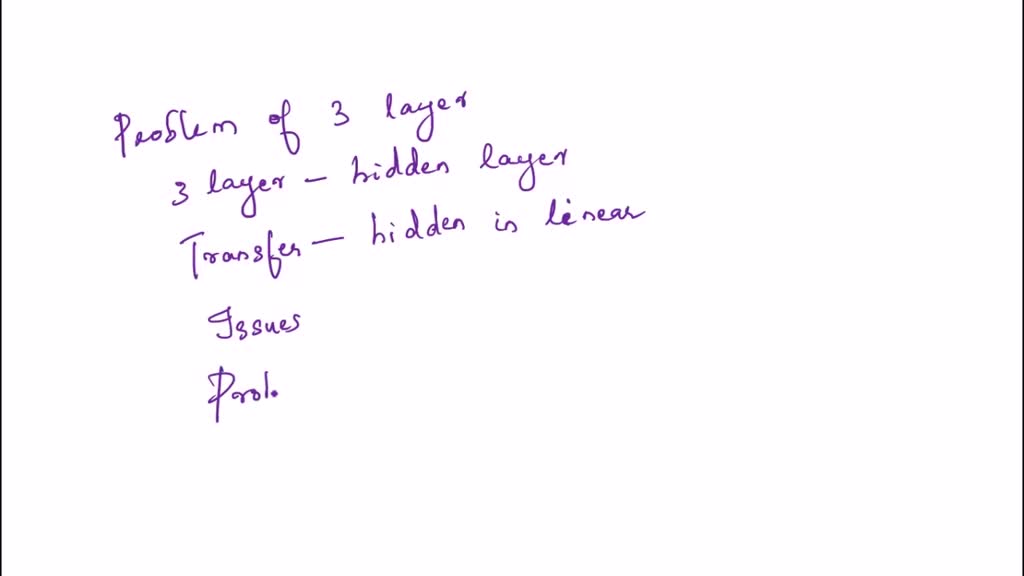 Problem of 3 layer
3 layer - hidden layer
Transfer - hidden is linear
Issues
Prob